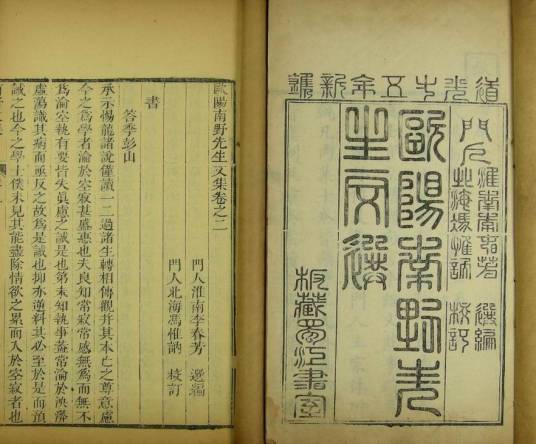 道光十五年新鐫
門人 淮南李春芳 選編
北海馮惟訥 校訂
歐陽南野先
生文選
板藏蜀江書室
歐陽南野先生文集卷之二
門人淮南李春芳 選編
門人北海馮惟訥 校訂
書
答季彭山
承示惕龍諸說僅讀一二過諸生轉相傳觀幷其本亡之尊意慮
今之爲學者淪於空寂甚盛惠也夫良知常寂常感無爲而無不
爲淪空執有要皆失眞慮之誠是也第未知執事蓋常淪於泱漭
虛蕩識其病而亟反之故爲是誡也抑亦逆料其必至於是而預
誡之也今之學士僕未見其能盡除情欲之累而入於空寂者也